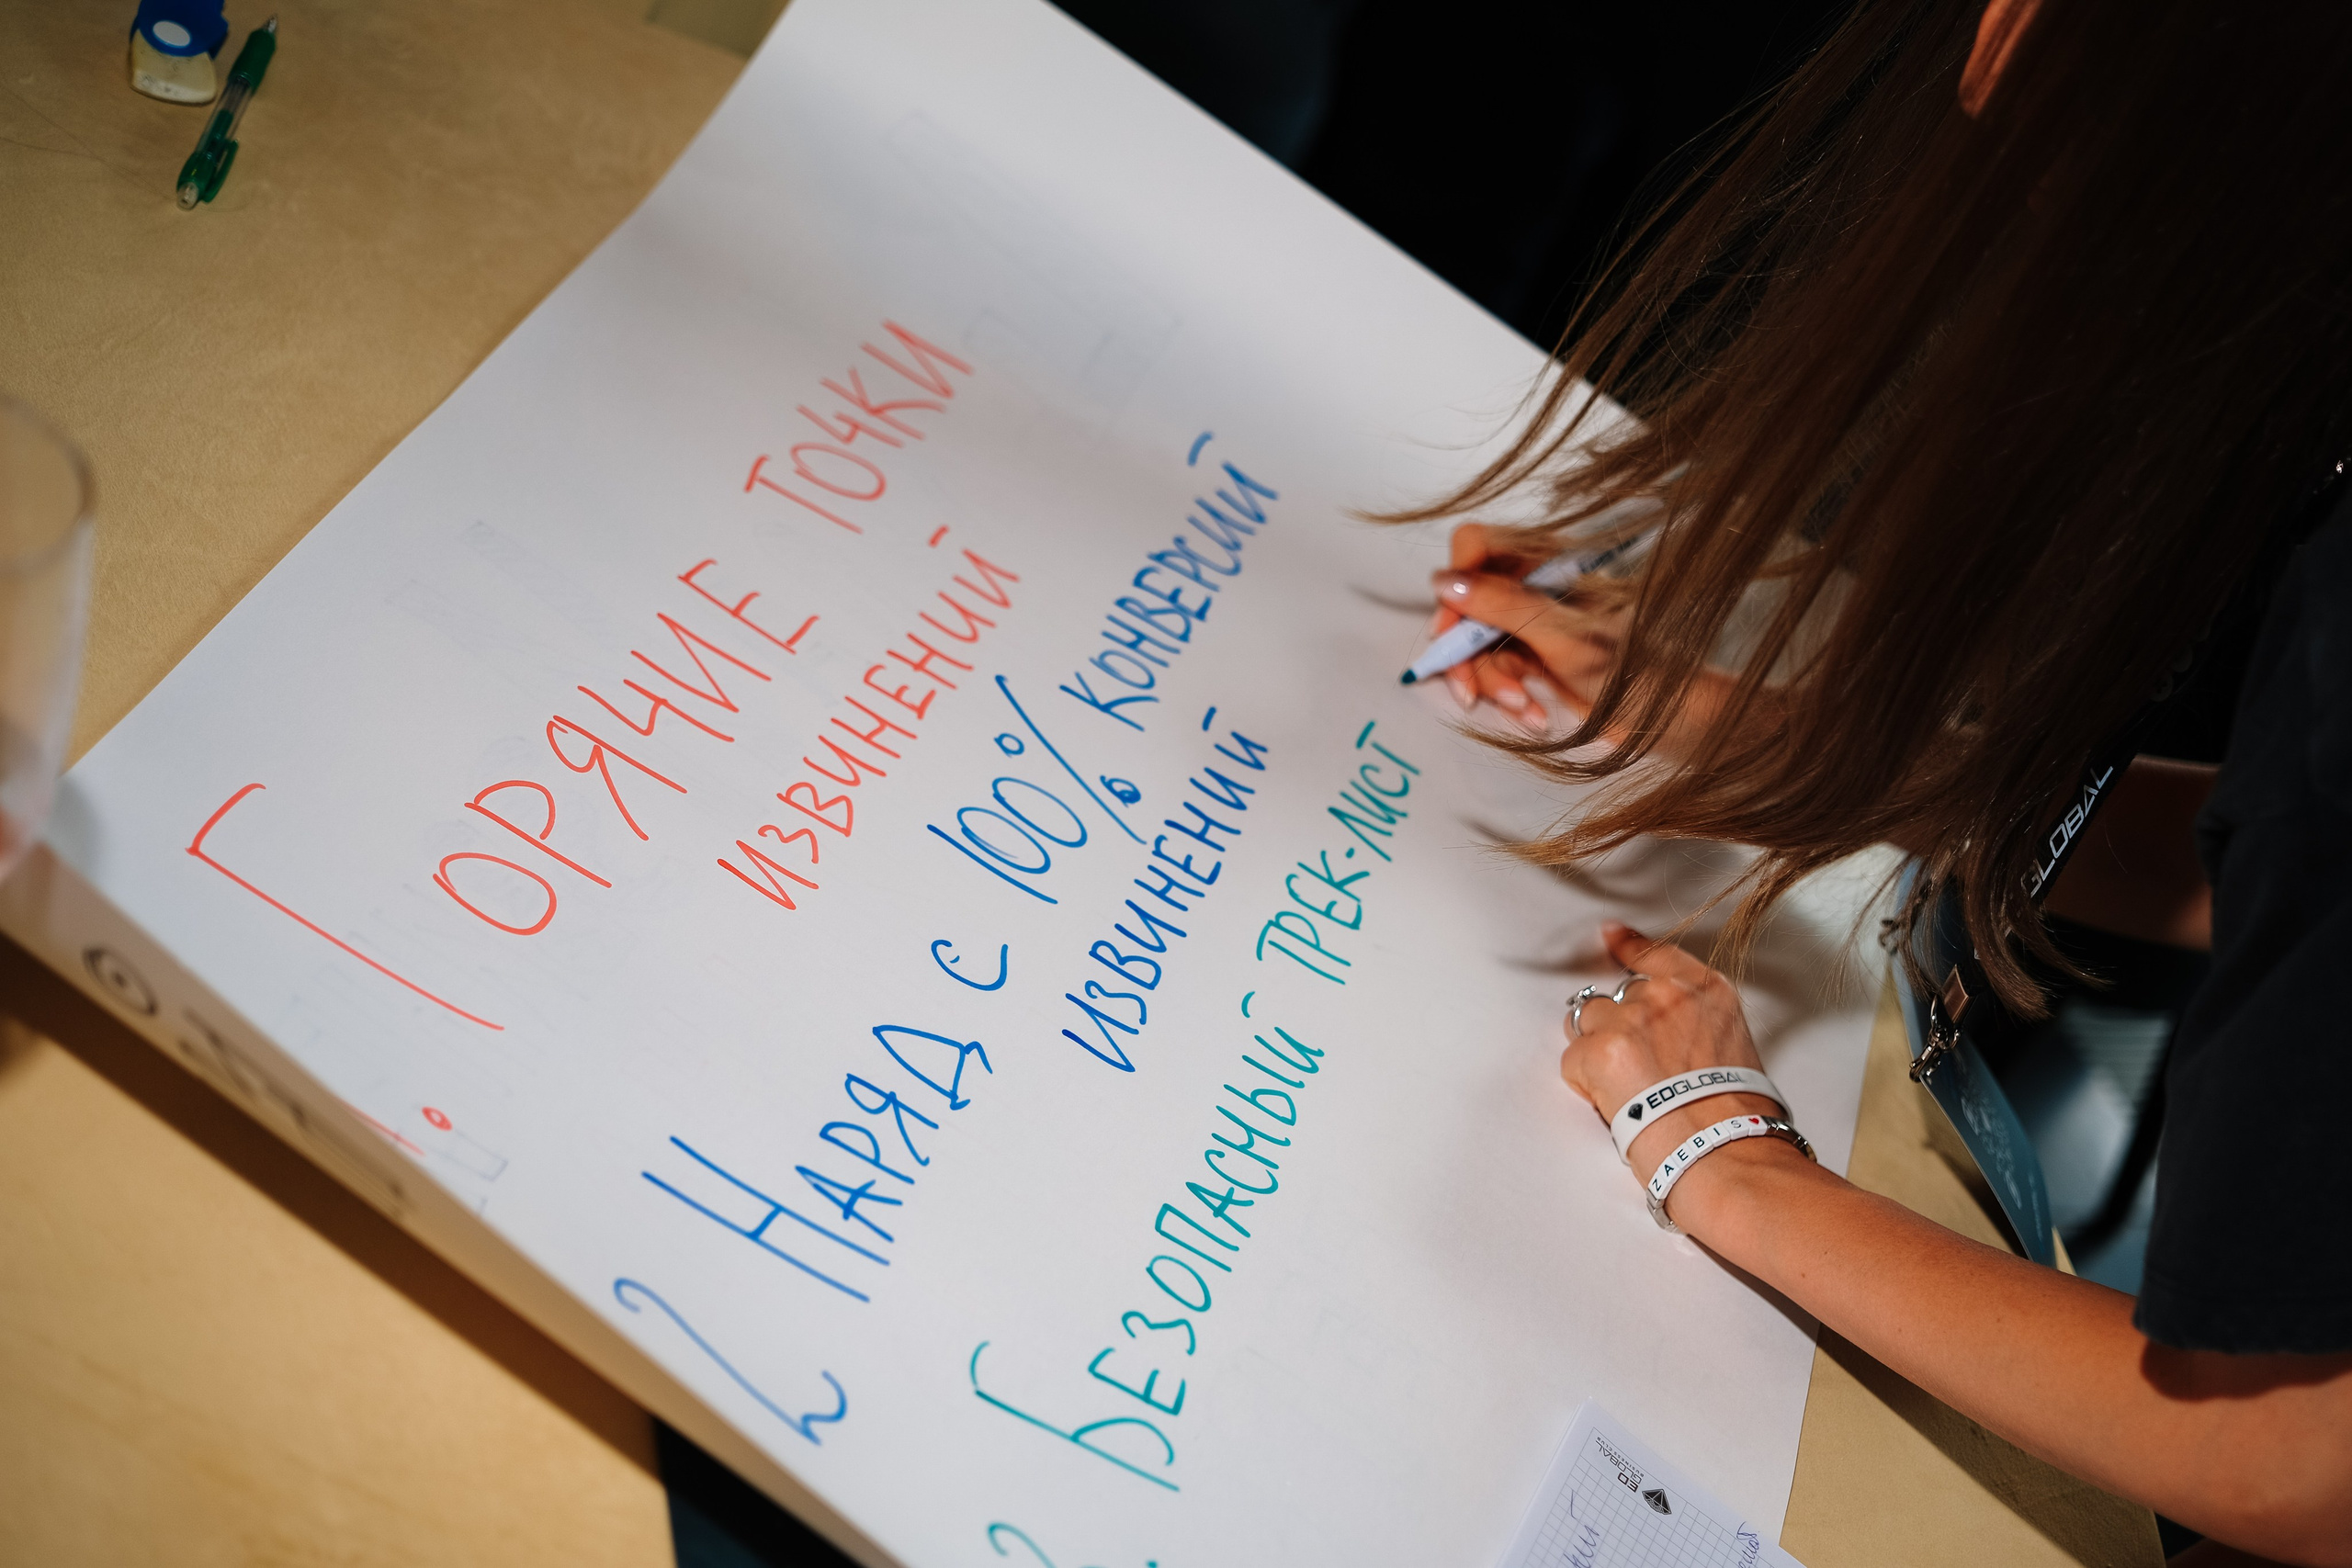 1. ГОРЯЧИЕ ТОЧКИ
ИЗВИНЕНИЙ
2 НАРЯД С 100% КОНВЕРСИЙ
ИЗВИНЕНИЙ
3. БЕЗОПАСНЫЙ ТРЕК-ЛИСТ
GLOBAL
EDGLOBAL
ZAEBIS
EMD
GLOBAL